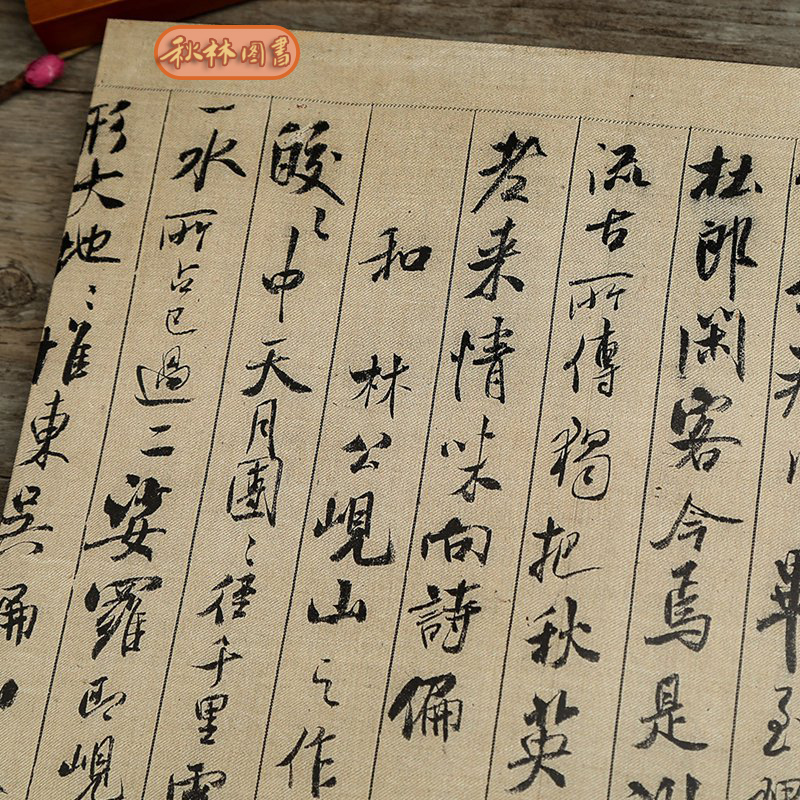 秋林图書
畢至
杜郎閑客今焉是
流古所傳獨把秋英
老来情味向詩偏
和林公峴山之作
皎〻中天月團〻徑千里震
一水所占已過二娑羅即峴
形大地〻惟東吳偏